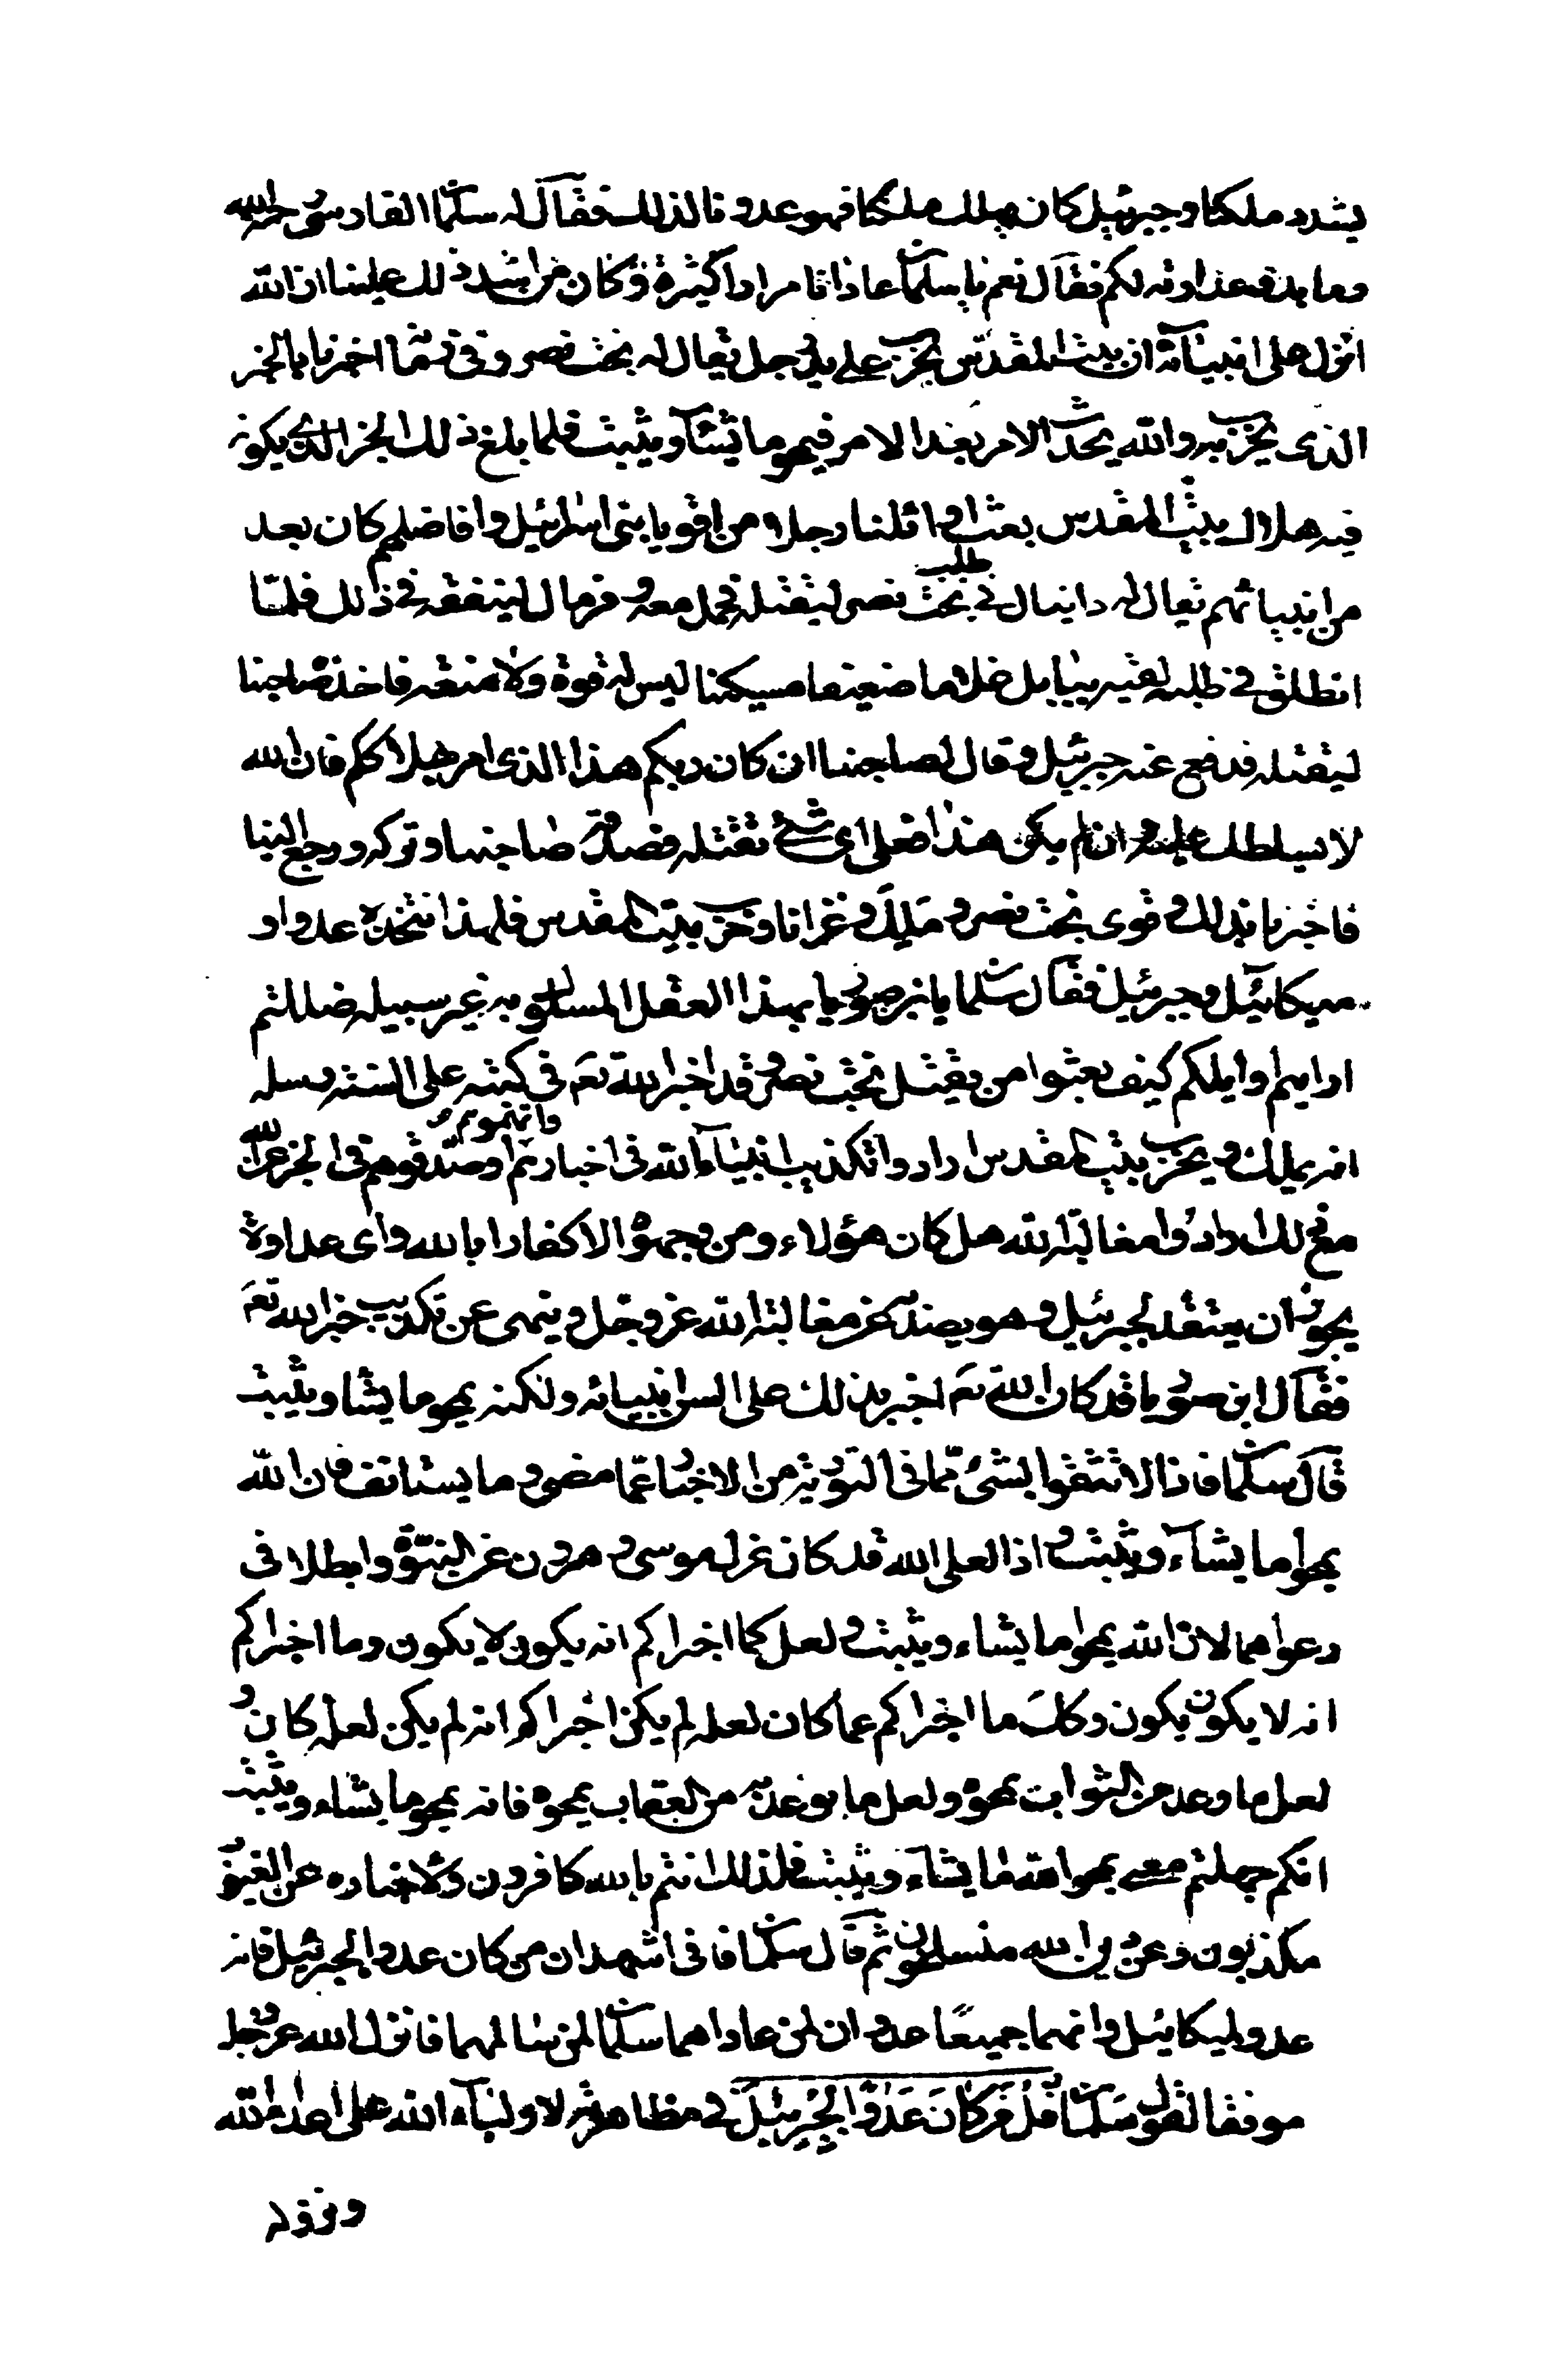 يشدد ملكنا وجبرئيل كان يهلك ملكنا فهو عدونا لذلك فقال له سلمان الفارسي رضي الله
وما بدء عداوته لكم فقال نعم يا سلمان عادانا مرارا كثيرة وكان من اشد ذلك علينا ان الله
انزل على انبيائه ان بيت المقدس يخرب على يد رجل يقال له بخت نصر وفي زمانه اخبرنا بالخبر
الذى يخرب به والله يحدث الامر بعد الامر فيمحو ما يشآء ويثبت فلما بلغ ذلك الخبر الذى يكون
فيه هلاك بيت المقدس بعث اوائلنا رجلا من اقوياء بنى اسرائيل وافاضلهم كان يعد
من انبيائهم يقال له دانيال في طلب بخت نصر ليقتله فحمل معه وقر مال لينفقه في ذلك فلما
انطلق في طلبه لقيه ببابل غلاما ضعيفا مسكينا ليس له قوة ولا منعة فاخذه صاحبنا
ليقتله فدفع عنه جبرئيل وقال لصاحبنا ان كان ربكم هذا الذى امر بهلاككم فان الله
لا يسلطك عليه وان لم يكن هذا فعلى اى شئ تقتله فصدقه صاحبنا وتركه ورجع الينا
فاخبرنا بذلك وقوى بخت نصر وملك وغزانا وخرب بيت المقدس فلهذا نتخذه عدوا و
ميكائيل عدو لجبرئيل فقال سلمان يا بن صوريا بهذا العقل المسلوك به غير سبيله ضللتم
ارايتم اوائلكم كيف بعثوا من يقتل بخت نصر وقد اخبر الله تع في كتبه على السنة رسله
انه يملك ويخرب بيت المقدس ارادوا تكذيب انبياء الله في اخبارهم واتهموهم او صدقوهم في الخبر عن الله
مع ذلك ارادوا مغالبة الله هل كان هؤلاء ومن وجهوه الا كفارا بالله واى عداوة
يجوز ان يعتقد لجبرئيل وهو يصد عن مغالبة الله عز وجل وينهى عن تكذيب خبر الله تع
فقال ابن صوريا قد كان الله تع اخبر بذلك على السن انبيائه ولكنه يمحو ما يشاء ويثبت
قال سلمان فاذا لا تثقوا بشئ مما في التورية من الاخبار عما مضى وما يستانف فان الله
يمحوا ما يشآء ويثبت واذا لعل الله قد كان عزل موسى وهرون عن النبوة وابطلا فى
دعواهما لان الله يمحوا ما يشاء ويثبت ولعل كلما اخبراكم انه يكون لا يكون وما اخبراكم
انه لا يكون يكون وكذلك ما اخبراكم عما كان لعله لم يكن وما اخبراكم انه لم يكن لعله كان و
لعل ما وعد من الثواب يمحوه ولعل ما توعد به من العقاب يمحوه فانه يمحو ما يشاء ويثبت
انكم جهلتم معنى يمحوا الله ما يشآء ويثبت فلذلك انتم بالله كافرون ولاخباره عن الغيوب
مكذبون وعن دين الله منسلخون ثم قال سلمان فانى اشهد ان من كان عدوا لجبرئيل فانه
عدو لميكائيل وانهما جميعا عدوان لمن عاداهما سلمان لمن سالمهما فانزل الله عز وجل
موفقا لقول سلمان قُلْ مَنْ كَانَ عَدُوًّا لِجِبْرِئيلَ في مظاهرته لاولياء الله على اعداء الله
ونزوله